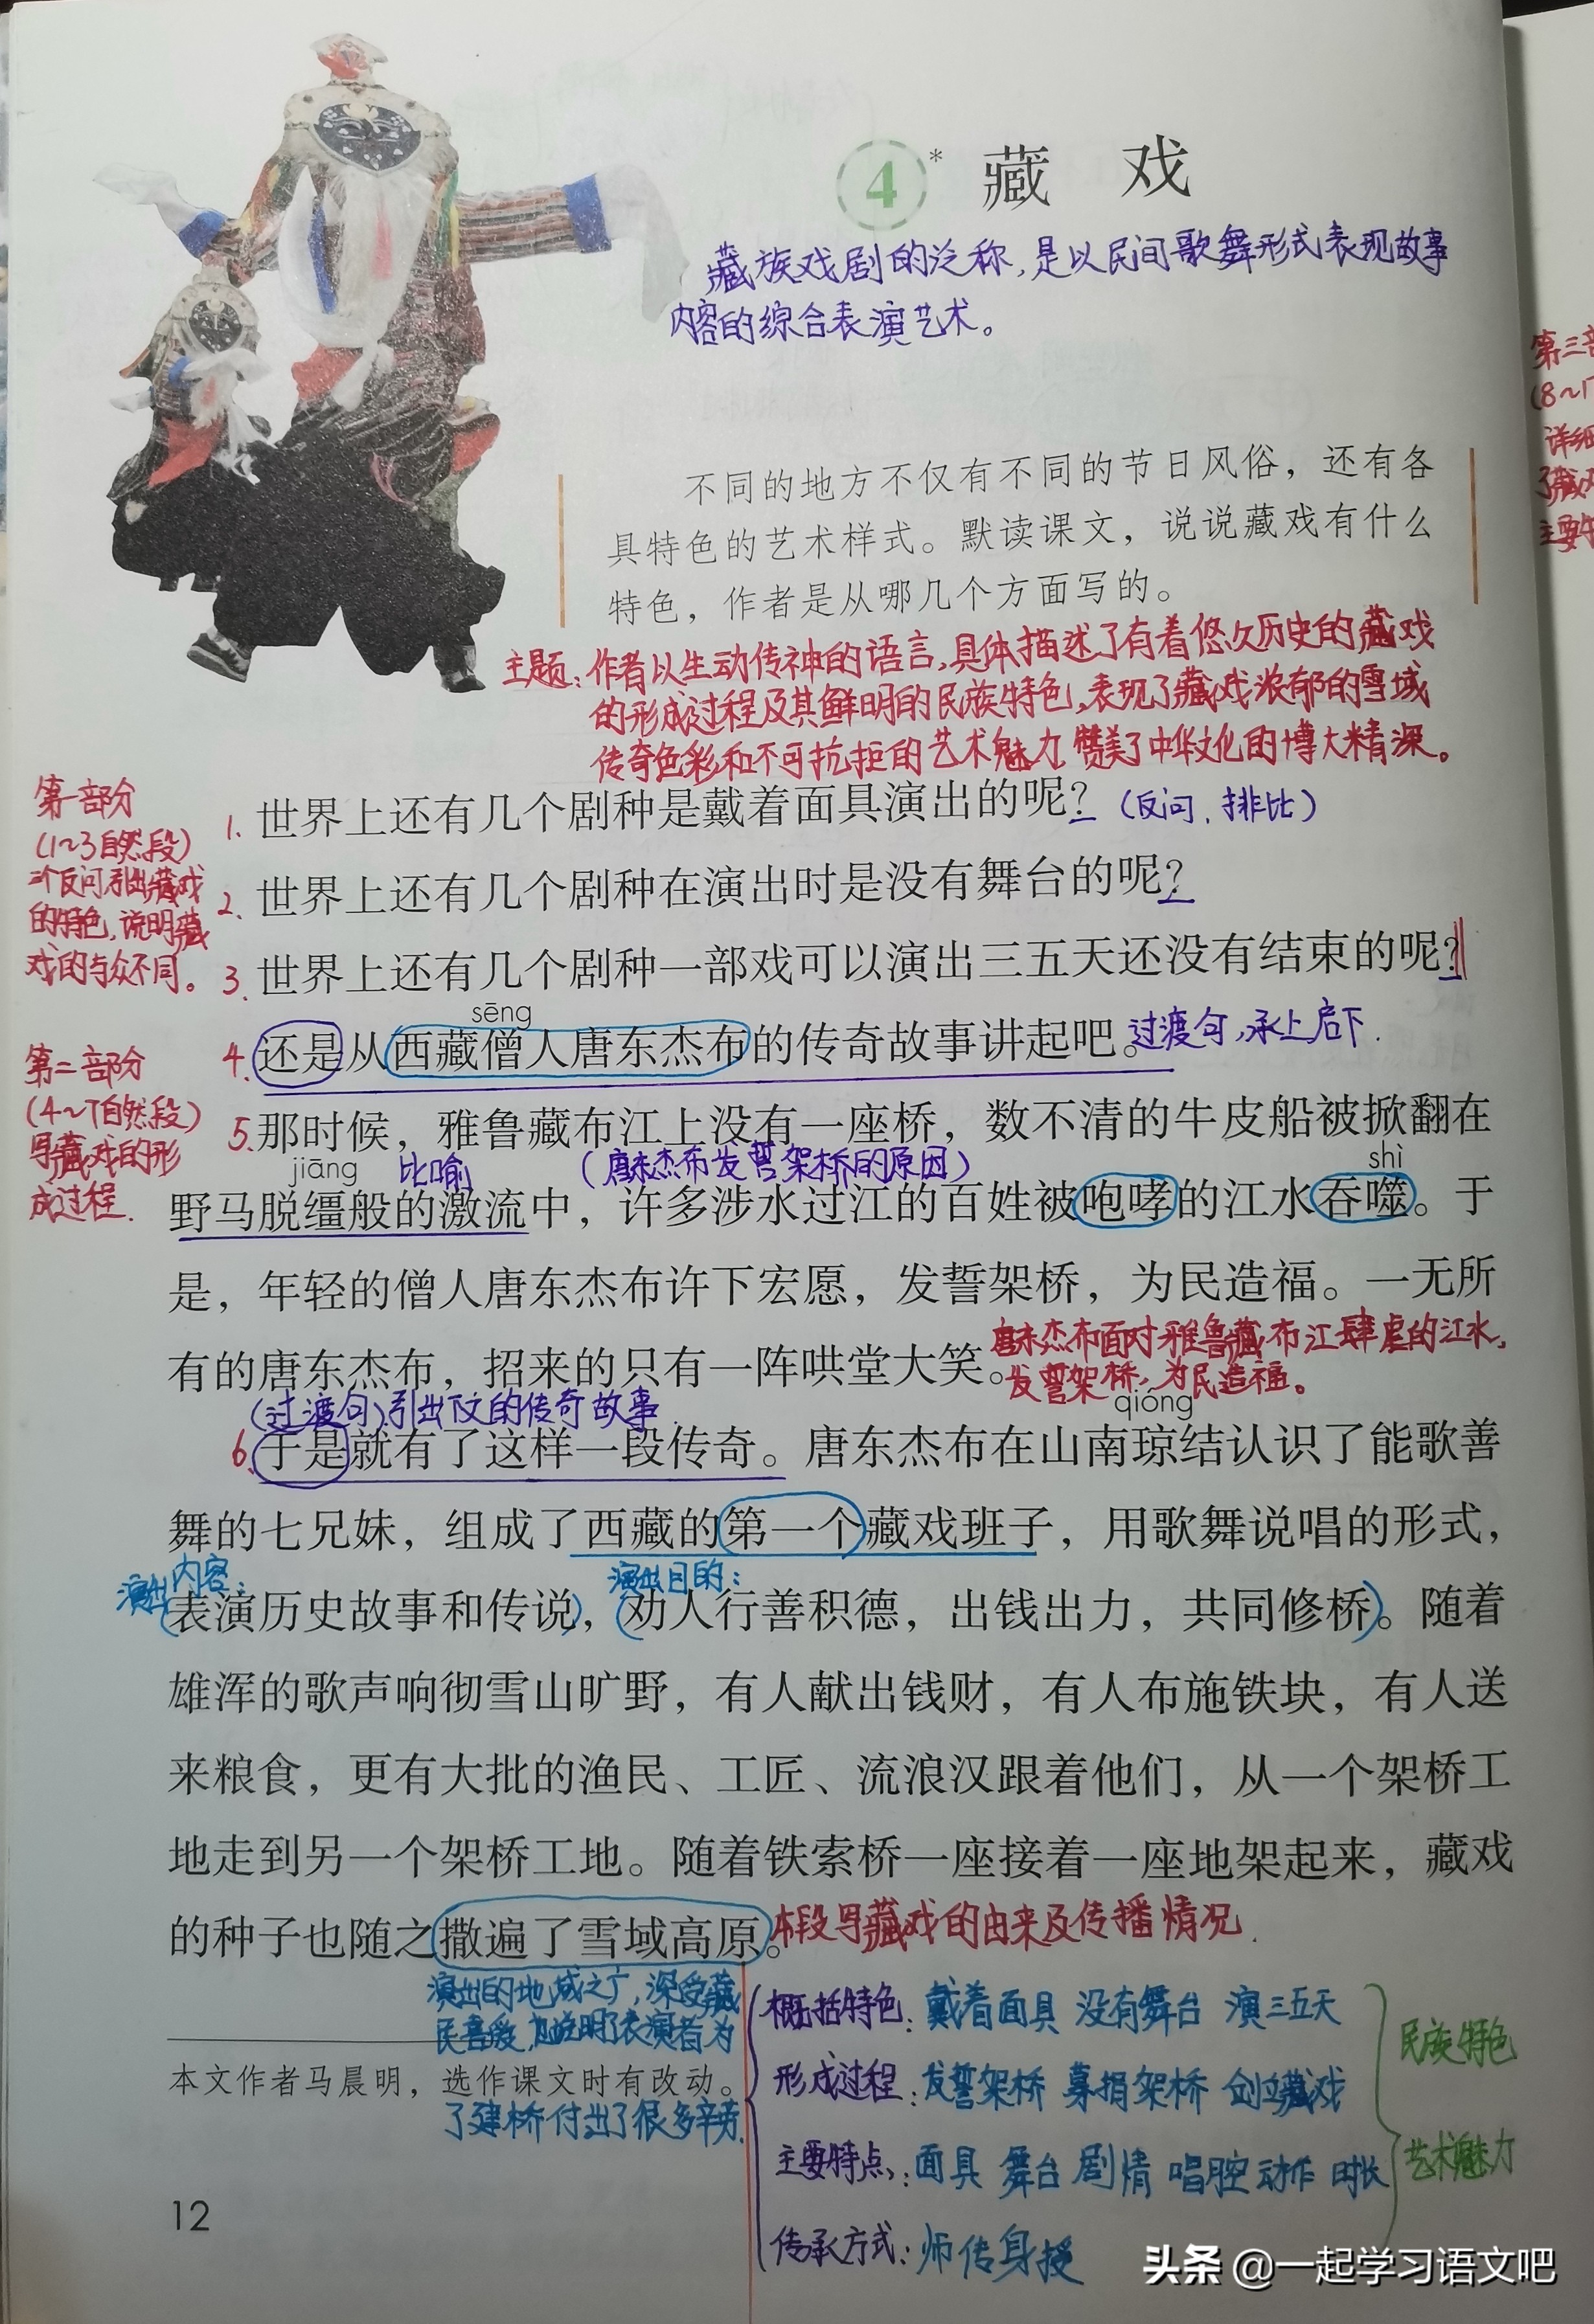 4* 藏 戏
藏族戏剧的泛称，是以民间歌舞形式表现故事
内容的综合表演艺术。
不同的地方不仅有不同的节日风俗，还有各
具特色的艺术样式。默读课文，说说藏戏有什么
特色，作者是从哪几个方面写的。
主题：作者以生动传神的语言，具体描述了有着悠久历史的藏戏
的形成过程及其鲜明的民族特色，表现了藏戏浓郁的雪域
传奇色彩和不可抗拒的艺术魅力，赞美了中华文化的博大精深。
第一部分
(1~3自然段)
三个反问引出藏戏
的特色，说明藏
戏的与众不同。
1. 世界上还有几个剧种是戴着面具演出的呢？(反问、排比)
2. 世界上还有几个剧种在演出时是没有舞台的呢？
3. 世界上还有几个剧种一部戏可以演出三五天还没有结束的呢？
sēng
4. 还是从西藏僧人唐东杰布的传奇故事讲起吧。过渡句，承上启下.
第二部分
(4~7自然段)
写藏戏的形
成过程.
5. 那时候，雅鲁藏布江上没有一座桥，数不清的牛皮船被掀翻在
jiāng 比喻 (唐东杰布发誓架桥的原因) shì
野马脱缰般的激流中，许多涉水过江的百姓被咆哮的江水吞噬。于
是，年轻的僧人唐东杰布许下宏愿，发誓架桥，为民造福。一无所
有的唐东杰布，招来的只有一阵哄堂大笑。
唐东杰布面对雅鲁藏布江肆虐的江水，
发誓架桥，为民造福。
(过渡句)引出下文的传奇故事. qióng
6. 于是就有了这样一段传奇。唐东杰布在山南琼结认识了能歌善
舞的七兄妹，组成了西藏的第一个藏戏班子，用歌舞说唱的形式，
演出内容： 演出目的：
表演历史故事和传说，劝人行善积德，出钱出力，共同修桥。随着
雄浑的歌声响彻雪山旷野，有人献出钱财，有人布施铁块，有人送
来粮食，更有大批的渔民、工匠、流浪汉跟着他们，从一个架桥工
地走到另一个架桥工地。随着铁索桥一座接着一座地架起来，藏戏
的种子也随之撒遍了雪域高原。本段写藏戏的由来及传播情况.
演出的地域之广，深受藏
民喜爱，也说明了表演者为
了建桥付出了很多辛劳.
本文作者马晨明，选作课文时有改动。
概括特色：戴着面具 没有舞台 演三五天
形成过程：发誓架桥 募捐架桥 创立藏戏
主要特点：面具 舞台 剧情 唱腔 动作 时长
传承方式：师传身授
民族特色
艺术魅力
12
第三部
(8~1
详细
了藏戏
主要特
头条 @一起学习语文吧